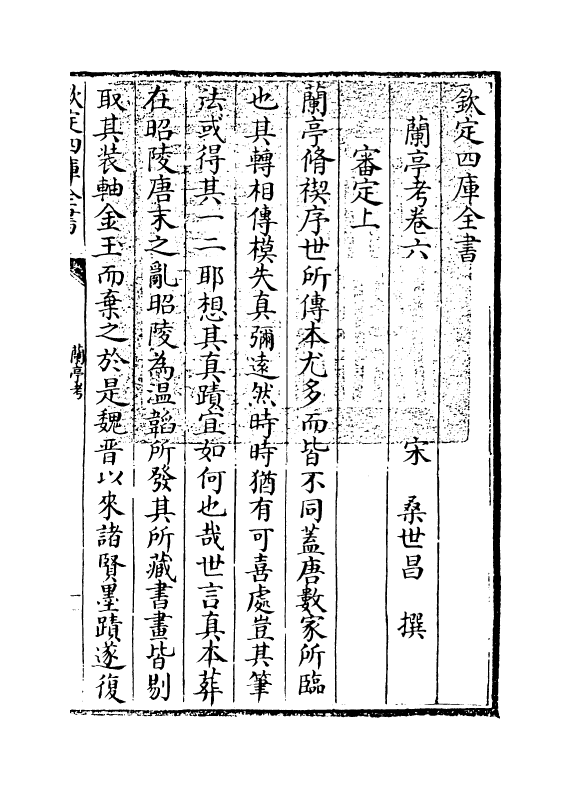 欽定四庫全書
蘭亭考卷六
宋 桑世昌 撰
審定上
蘭亭脩禊序世所傳本尤多而皆不同蓋唐數家所臨
也其轉相傳模失真彌遠然時時猶有可喜處豈其筆
法或得其一二耶想其真蹟宜如何也哉世言真本葬
在昭陵唐末之亂昭陵為温韜所發其所藏書畫皆剔
取其装軸金玉而棄之於是魏晋以來諸賢墨蹟遂復
欽定四庫全書
蘭亭考
一